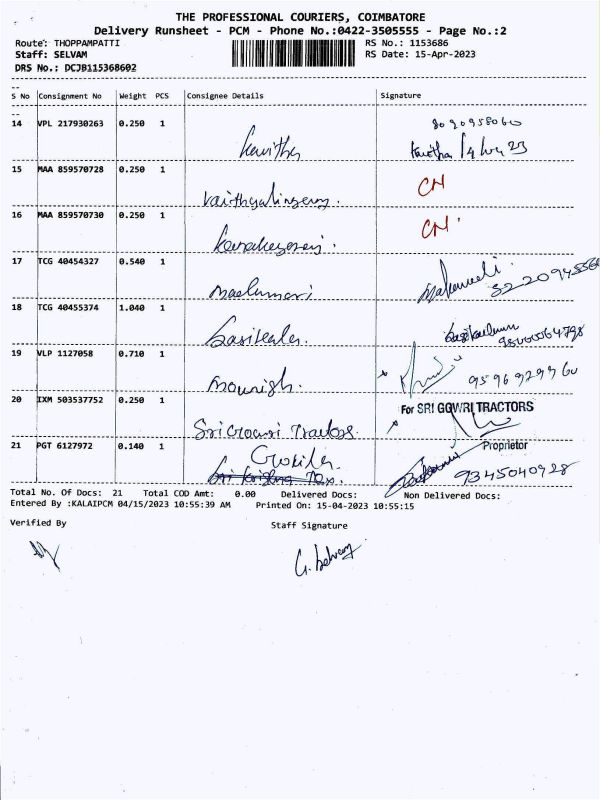 THE PROFESSIONAL COURIERS, COIMBATORE
Delivery Runsheet - PCM - Phone No.:0422-3505555 - Page No.:2
Route: THOPPAMPATTI RS No.: 1153686
Staff: SELVAM RS Date: 15-Apr-2023
DRS No.: DCJB115368602
S No Consignment No Weight PCS Consignee Details Signature
14 VPL 217930263 0.250 1 Kavitha 8020958060
15 MAA 859570728 0.250 1 CN
16 MAA 859570730 0.250 1 CN
17 TCG 40454327 0.540 1
18 TCG 40455374 1.040 1 Sasikala.
19 VLP 1127058 0.710 1 Mounish.
20 IXM 503537752 0.250 1 Sri Gowri Tractors For SRI GOWRI TRACTORS
Proprietor
21 PGT 6127972 0.140 1 9345040928
Total No. Of Docs: 21 Total COD Amt: 0.00 Delivered Docs: Non Delivered Docs:
Entered By :KALAIPCM 04/15/2023 10:55:39 AM Printed On: 15-04-2023 10:55:15
Verified By Staff Signature
G. Selvam